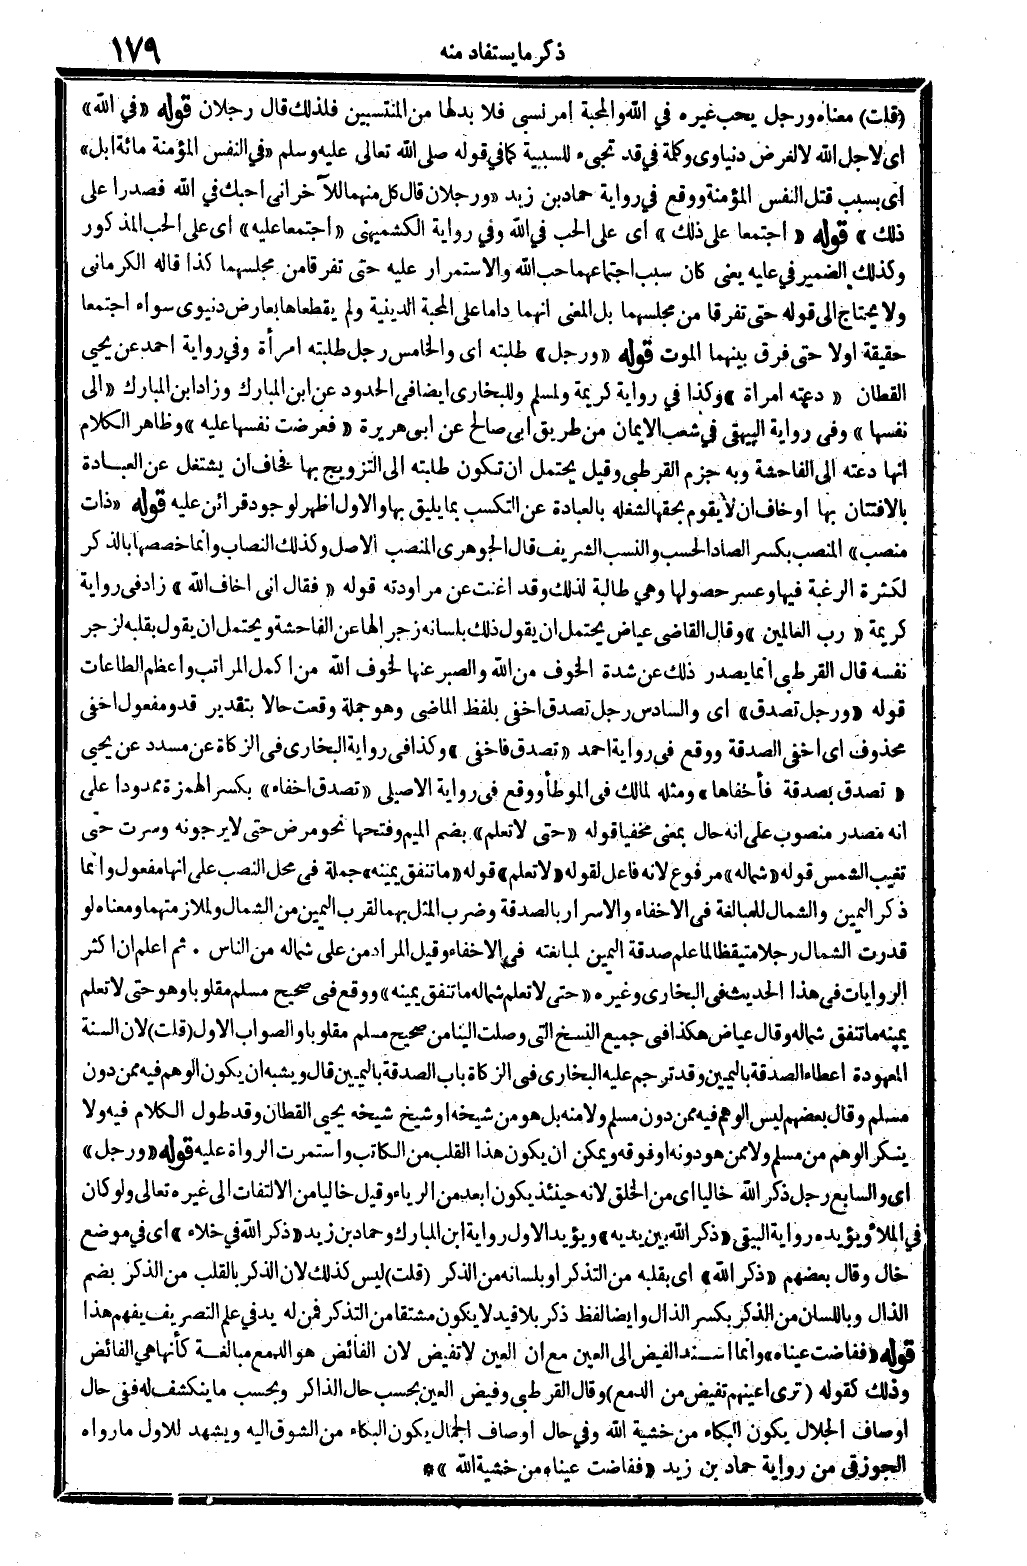 ذكر ما يستفاد منه
١٧٩
(قلت) معناه ورجل يحب غيره في الله والمحبة امر نسبي فلا بد لها من المنتسبين فلذلك قال رجلان قوله «في الله»
اى لاجل الله لا لغرض دنياوى وكلمة في قد تجىء للسببية كما في قوله صلى الله تعالى عليه وسلم «في النفس المؤمنة مائة ابل»
اى بسبب قتل النفس المؤمنة ووقع في رواية حماد بن زيد «ورجلان قال كل منهما للآخر انى احبك في الله فصدرا على
ذلك» قوله «اجتمعا على ذلك» اى على الحب في الله وفي رواية الكشميهنى «اجتمعا عليه» اى على الحب المذكور
وكذلك الضمير في عليه يعنى كان سبب اجتماعهما حب الله والاستمرار عليه حتى تفرقا من مجلسهما كذا قاله الكرمانى
ولا يحتاج الى قوله حتى تفرقا من مجلسهما بل المعنى انهما داما على المحبة الدينية ولم يقطعاها بعارض دنيوى سواء اجتمعا
حقيقة اولا حتى فرق بينهما الموت قوله «ورجل» طلبته اى والخامس رجل طلبته امرأة وفي رواية احمد عن يحيي
القطان «دعته امراة» وكذا في رواية كريمة ولمسلم وللبخارى ايضا فى الحدود عن ابن المبارك وزاد ابن المبارك «الى
نفسها» وفى رواية البيهقى في شعب الايمان من طريق ابى صالح عن ابى هريرة «فعرضت نفسها عليه» وظاهر الكلام
انها دعته الى الفاحشة وبه جزم القرطى وقيل يحتمل ان تكون طلبته الى التزويج بها فخاف ان يشتغل عن العبادة
بالافتتان بها او خاف ان لا يقوم بحقها لشغله بالعبادة عن التكسب بما يليق بها والاول اظهر لوجود قرائن عليه قوله «ذات
منصب» المنصب بكسر الصاد الحسب والنسب الشريف قال الجوهرى المنصب الاصل وكذلك النصاب وانما خصصها بالذكر
لكثرة الرغبة فيها وعسر حصولها وهي طالبة لذلك وقد اغنت عن مراودته قوله «فقال انى اخاف الله» زاد فى رواية
كريمة «رب العالمين» وقال القاضى عياض يحتمل ان يقول ذلك بلسانه زجرا لها عن الفاحشة ويحتمل ان يقول بقلبه لزجر
نفسه قال القرطبى انما يصدر ذلك عن شدة الخوف من الله والصبر عنها لخوف الله من اكمل المراتب واعظم الطاعات
قوله «ورجل تصدق» اى والسادس رجل تصدق اخفى بلفظ الماضى وهو جملة وقعت حالا بتقدير قد ومفعول اخفى
محذوف اى اخفى الصدقة ووقع في رواية احمد «تصدق فاخفى» وكذا فى رواية البخارى فى الزكاة عن مسدد عن يحيي
«تصدق بصدقة فأخفاها» ومثله لمالك فى الموطأ ووقع فى رواية الاصيلى «تصدق اخفاء» بكسر الهمزة ممدودا على
انه مصدر منصوب على انه حال بمعنى مخفيا قوله «حتى لا تعلم» بضم الميم وفتحها نحو مرض حتى لا يرجونه وسرت حتى
تغيب الشمس قوله «شماله» مرفوع لانه فاعل لقوله «لا تعلم» قوله «ما تنفق يمينه» جملة فى محل النصب على انها مفعول وانما
ذكر اليمين والشمال للمبالغة فى الاخفاء والاسرار بالصدقة وضرب المثل بهما لقرب اليمين من الشمال ولملازمتهما ومعناه لو
قدرت الشمال رجلا متيقظا لما علم صدقة اليمين لمبالغته في الاخفاء وقيل المراد من على شماله من الناس . ثم اعلم ان اكثر
الروايات فى هذا الحديث فى البخارى وغيره «حتى لا تعلم شماله ما تنفق يمينه» ووقع فى صحيح مسلم مقلوبا وهو حتى لا تعلم
يمينه ما تنفق شماله وقال عياض هكذا فى جميع النسخ التى وصلت الينا من صحيح مسلم مقلوبا والصواب الاول (قلت) لان السنة
المعهودة اعطاء الصدقة باليمين وقد ترجم عليه البخارى فى الزكاة باب الصدقة باليمين قال ويشبه ان يكون الوهم فيه ممن دون
مسلم وقال بعضهم ليس الوهم فيه ممن دون مسلم ولا منه بل هو من شيخه او شيخ شيخه يحيي القطان وقد طول الكلام فيه ولا
ينكر الوهم من مسلم ولا ممن هو دونه او فوقه ويمكن ان يكون هذا القلب من الكاتب واستمرت الرواة عليه قوله «ورجل»
اى والسابع رجل ذكر الله خاليا اى من الخلق لانه حينئذ يكون ابعد من الرياء وقيل خاليا من الالتفات الى غيره تعالى ولو كان
في الملأ ويؤيده رواية البيقى «ذكر الله بين يديه» ويؤيد الاول رواية ابن المبارك وحماد بن زيد «ذكر الله في خلاء» اى في موضع
خال وقال بعضهم «ذكر الله» اى بقلبه من التذكر او بلسانه من الذكر (قلت) ليس كذلك لان الذكر بالقلب من الذكر بضم
الذال وباللسان من الذكر بكسر الذال وايضا لفظ ذكر بلا قيد لا يكون مشتقا من التذكر فمن له يد في علم التصريف يفهم هذا
قوله «ففاضت عيناه» وانما اسند الفيض الى العين مع ان العين لا تفيض لان الفائض هو الدمع مبالغة كأنها هي الفائض
وذلك كقوله (ترى اعينهم تفيض من الدمع) وقال القرطبى وفيض العين بحسب حال الذاكر وبحسب ما ينكشف له ففى حال
اوصاف الجلال يكون البكاء من خشية الله وفي حال اوصاف الجمال يكون البكاء من الشوق اليه ويشهد للاول ما رواه
الجوزقى من رواية حماد بن زيد «ففاضت عيناه من خشية الله» *